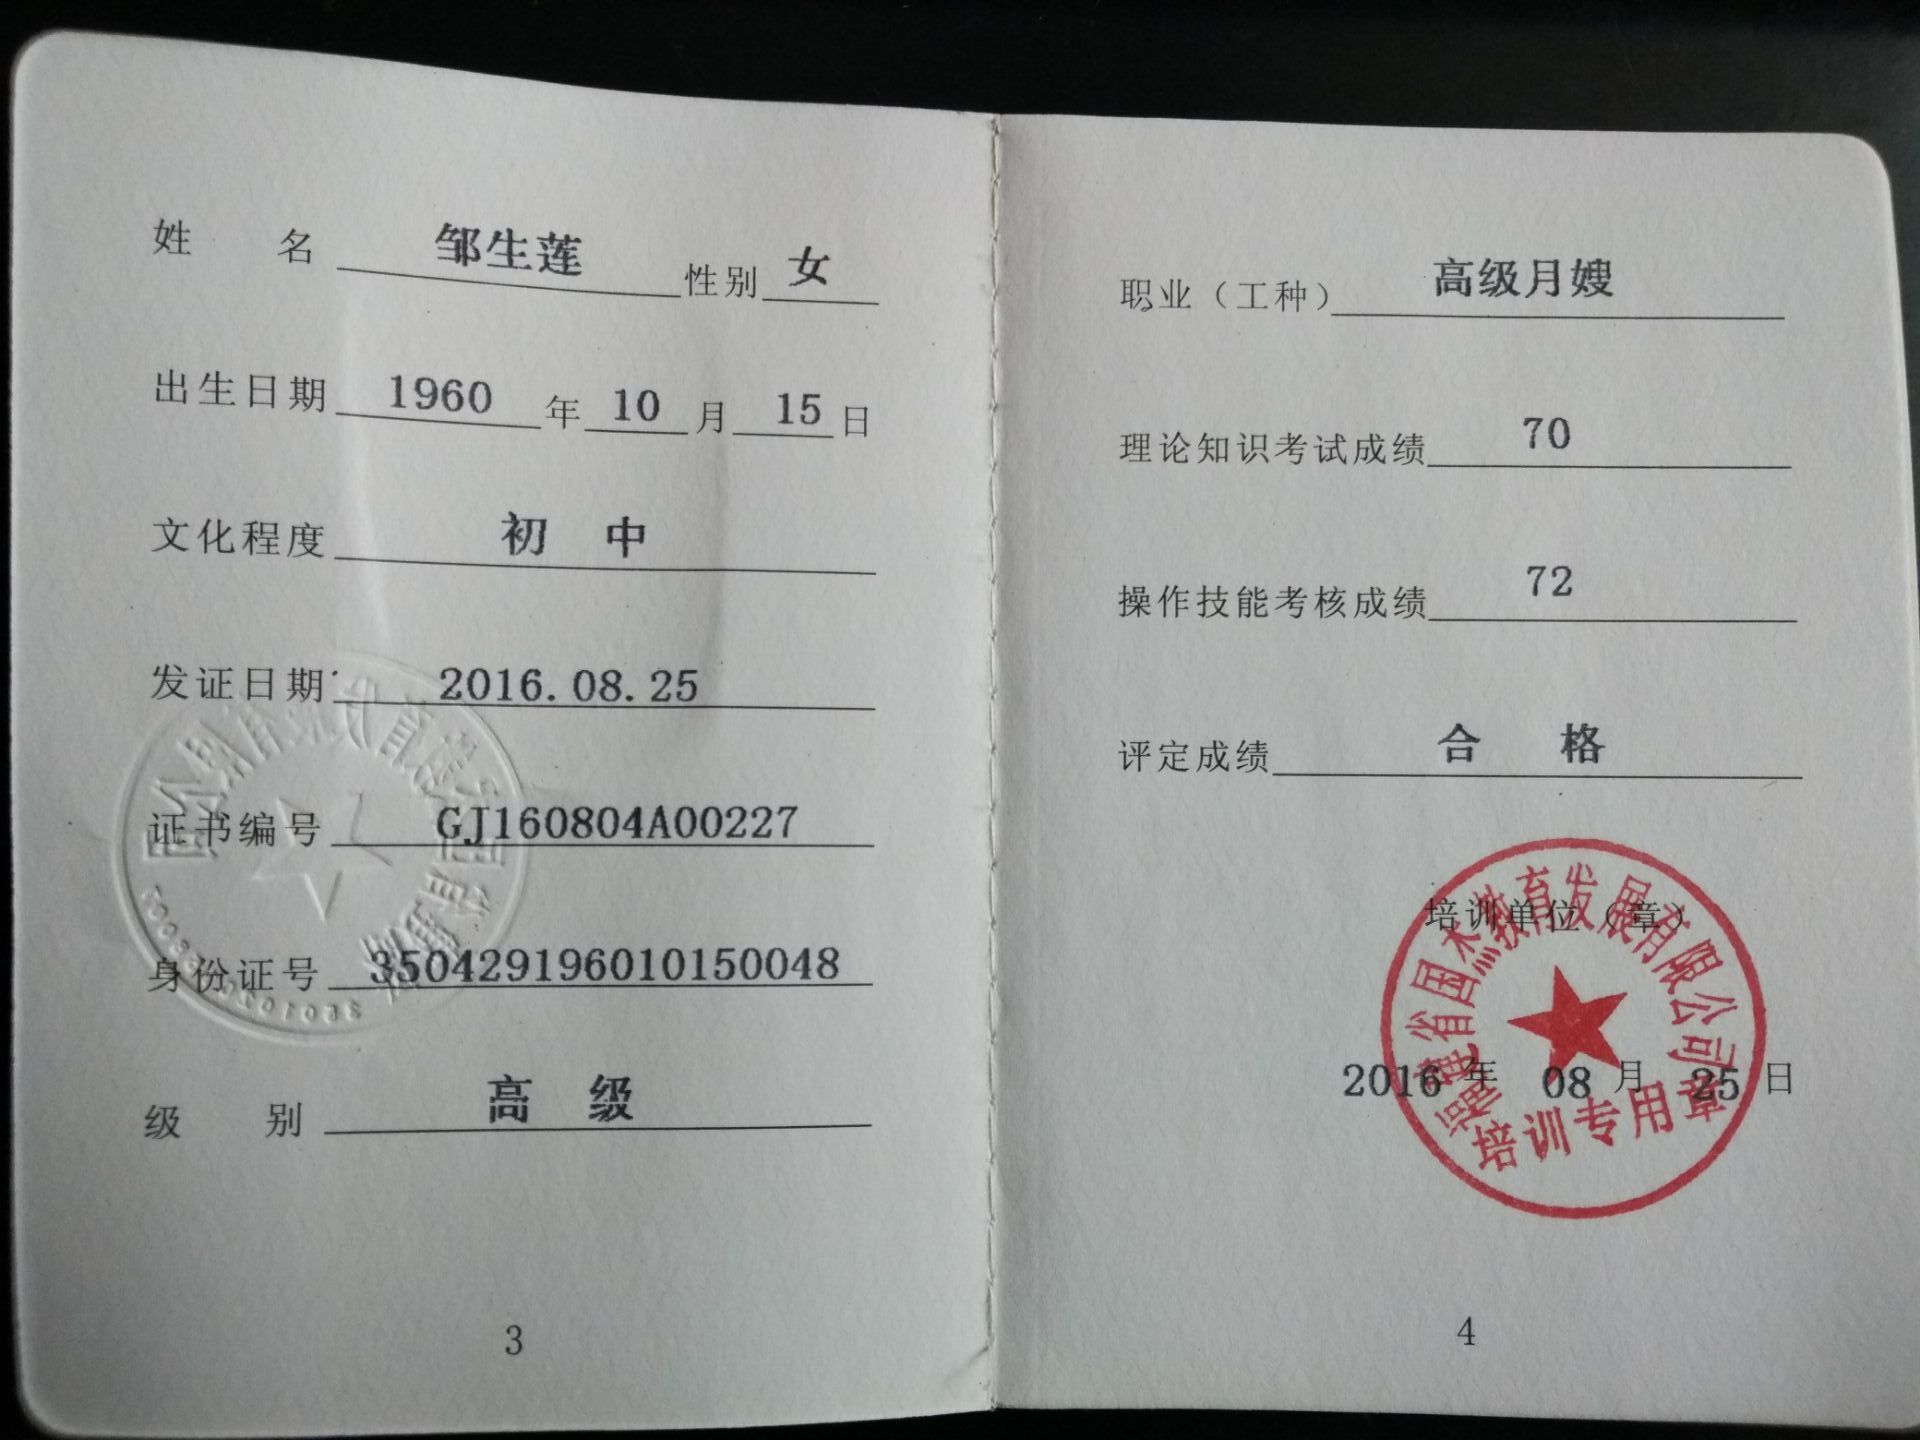 姓 名 邹生莲 性别 女
出生日期 1960 年 10 月 15 日
文化程度 初 中
发证日期 2016.08.25
证书编号 GJ160804A00227
身份证号 350429196010150048
级 别 高 级
3
职业（工种） 高级月嫂
理论知识考试成绩 70
操作技能考核成绩 72
评定成绩 合 格
培训单位（章）
福建省国杰教育发展有限公司
2016 年 08 月 25 日
培训专用章
4